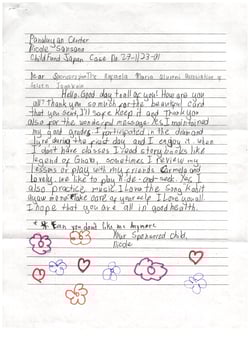 Panaluyan Center
Nicole Sansano
ChildFund Japan Case No. 27-1/23-91
Dear Sponsorparents Rapaela Maria Alumni Association of
Seisen Jogakuin
Hello, Good day to all of you! How are you
all? Thank you so much for the beautiful card
that you send, I will safe keep it. and Thank you
also for the wonderful message. Yes I maintained
my good grades. I participated in the drum and
lyre during the first day and I enjoy it. when
I don't have classes I read story books like
legend of Gnats, sometimes I review my
lessons or play with my friends Carmela and
lovely. we like to play hide-and-seek. Yes, I
also practice music. I love the song Kahit
ayaw mo na. Take care of yourself. I Love you all
I hope that you are all in good health.
* Even you don't like me Anymore
Your Sponsored child,
Nicole